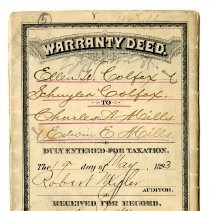 5
WARRANTY DEED.
Ellen W. Colfax &
Schuyler Colfax.
TO
Charles A. Nicolls
& Edwin E. Nicolls
DULY ENTERED FOR TAXATION.
day of May 1893
Robert
AUDITOR.
RECEIVED FOR RECORD,